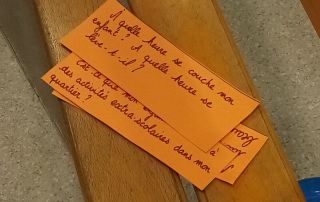 A quelle heure se couche mon
enfant ? A quelle heure se
lève-t-il ?
Est-ce que mon
à
des activités extra-scolaires dans mon
quartier ?